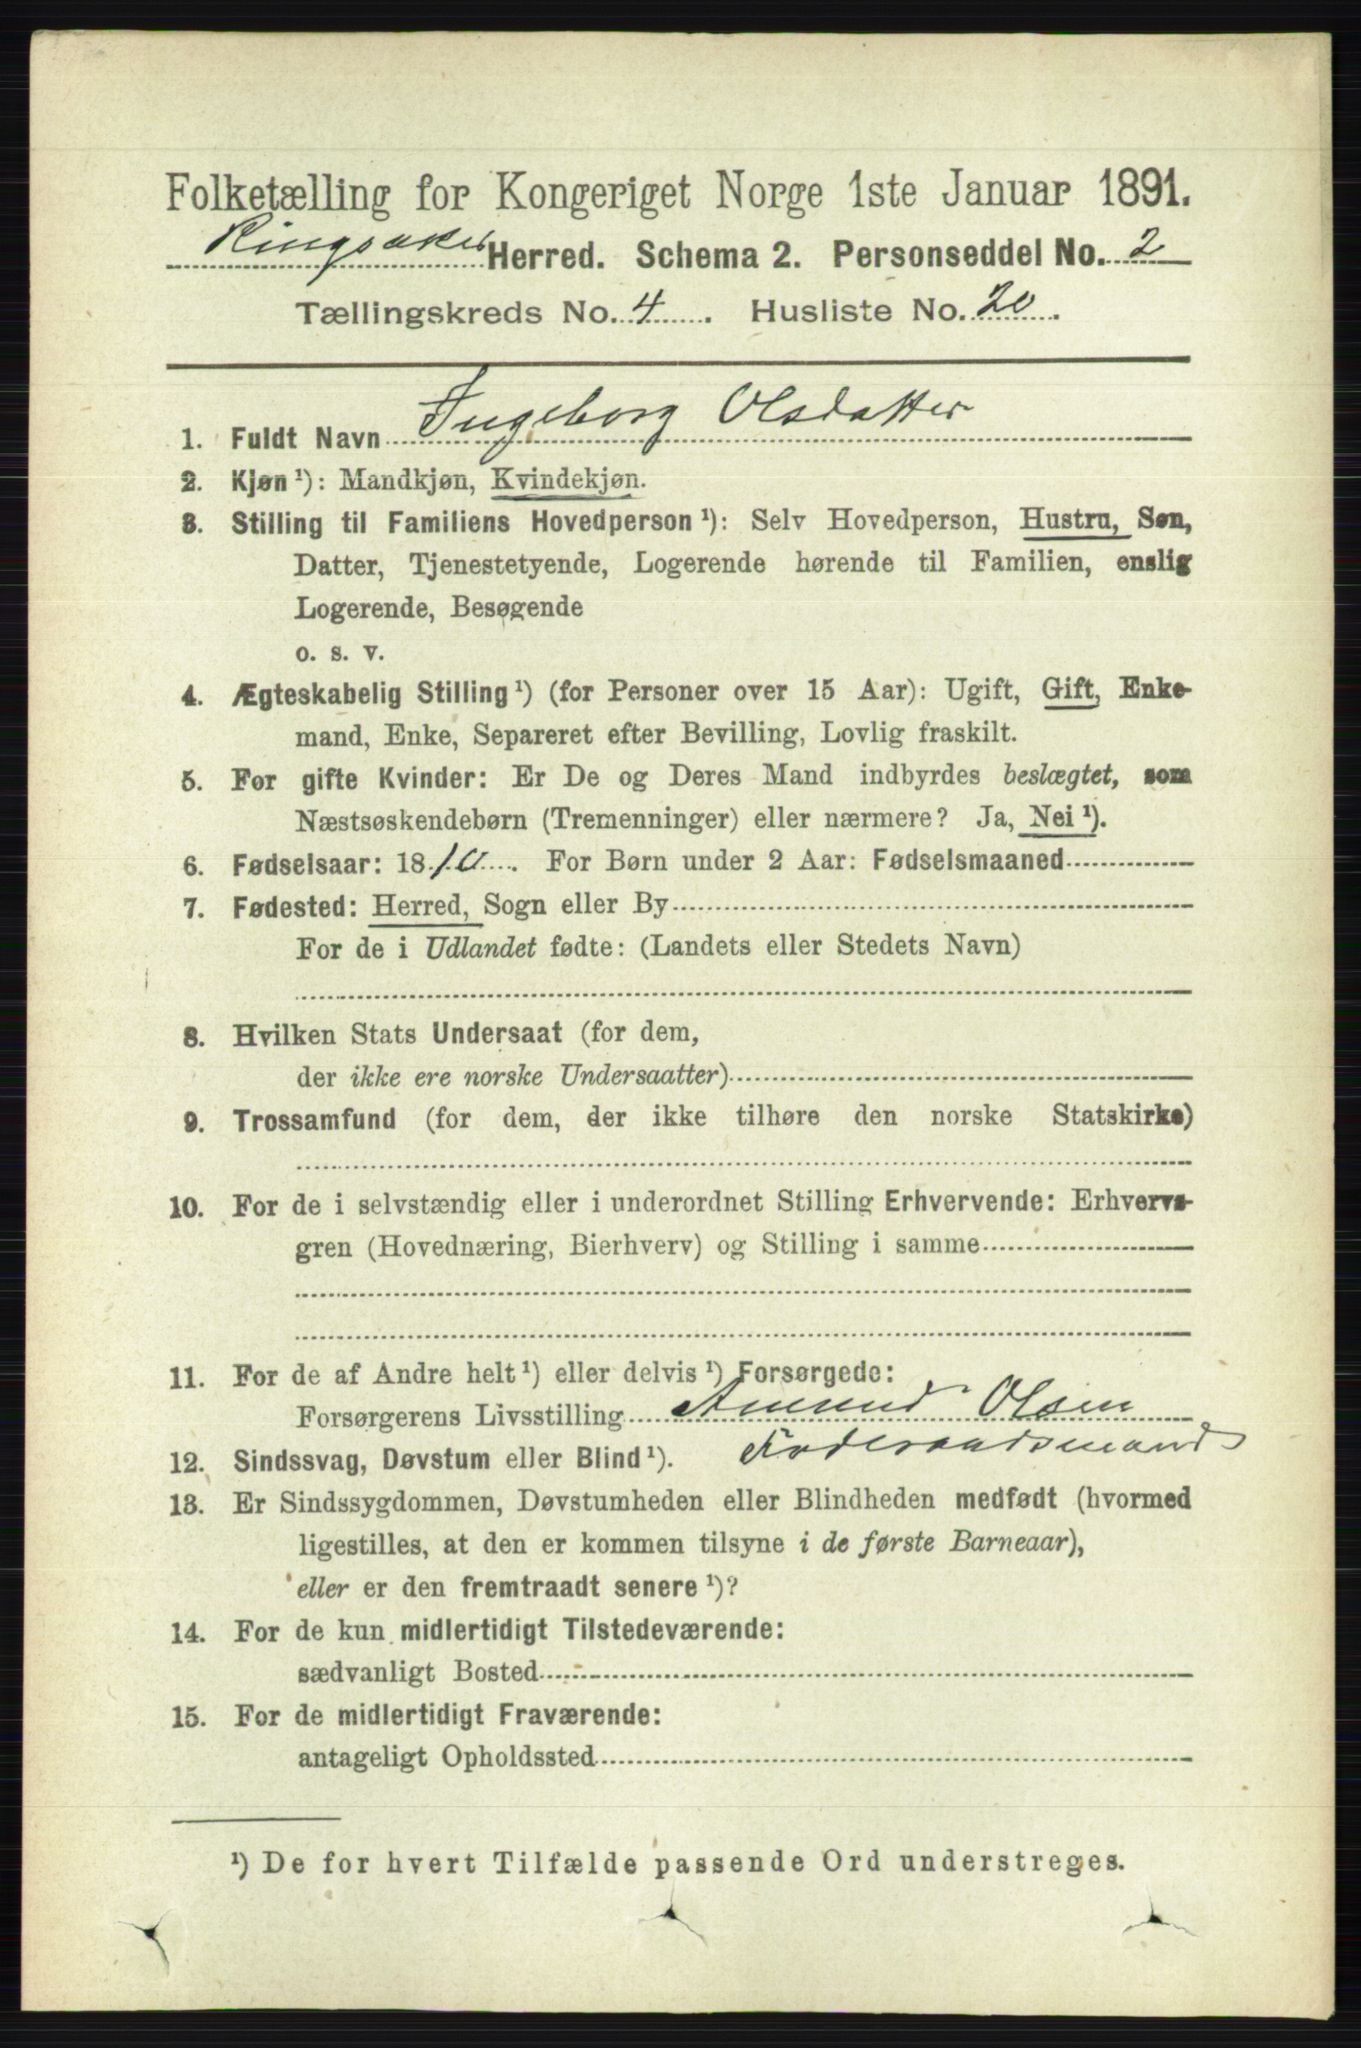 Folketælling for Kongeriget Norge 1ste Januar 1891.
Ringsaker Herred. Schema 2. Personseddel No. 2
Tællingskreds No. 4. Husliste No. 20.
1. Fuldt Navn Ingeborg Olsdatter
2. Kjøn ¹): Mandkjøn, Kvindekjøn.
3. Stilling til Familiens Hovedperson ¹): Selv Hovedperson, Hustru, Søn,
Datter, Tjenestetyende, Logerende hørende til Familien, enslig
Logerende, Besøgende
o. s. v.
4. Ægteskabelig Stilling ¹) (for Personer over 15 Aar): Ugift, Gift, Enke-
mand, Enke, Separeret efter Bevilling, Lovlig fraskilt.
5. For gifte Kvinder: Er De og Deres Mand indbyrdes beslægtet, som
Næstsøskendebørn (Tremenninger) eller nærmere? Ja, Nei ¹).
6. Fødselsaar: 1810. For Børn under 2 Aar: Fødselsmaaned
7. Fødested: Herred, Sogn eller By
For de i Udlandet fødte: (Landets eller Stedets Navn)
8. Hvilken Stats Undersaat (for dem,
der ikke ere norske Undersaatter)
9. Trossamfund (for dem, der ikke tilhøre den norske Statskirke)
10. For de i selvstændig eller i underordnet Stilling Erhvervende: Erhvervs-
gren (Hovednæring, Bierhverv) og Stilling i samme
11. For de af Andre helt ¹) eller delvis ¹) Forsørgede:
Forsørgerens Livsstilling Amund Olsen
12. Sindssvag, Døvstum eller Blind ¹). Foderaadsmand
13. Er Sindssygdommen, Døvstumheden eller Blindheden medfødt (hvormed
ligestilles, at den er kommen tilsyne i de første Barneaar),
eller er den fremtraadt senere ¹)?
14. For de kun midlertidigt Tilstedeværende:
sædvanligt Bosted
15. For de midlertidigt Fraværende:
antageligt Opholdssted
¹) De for hvert Tilfælde passende Ord understreges.